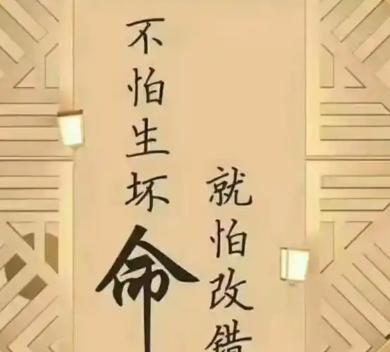 不怕生坏命
就怕改错